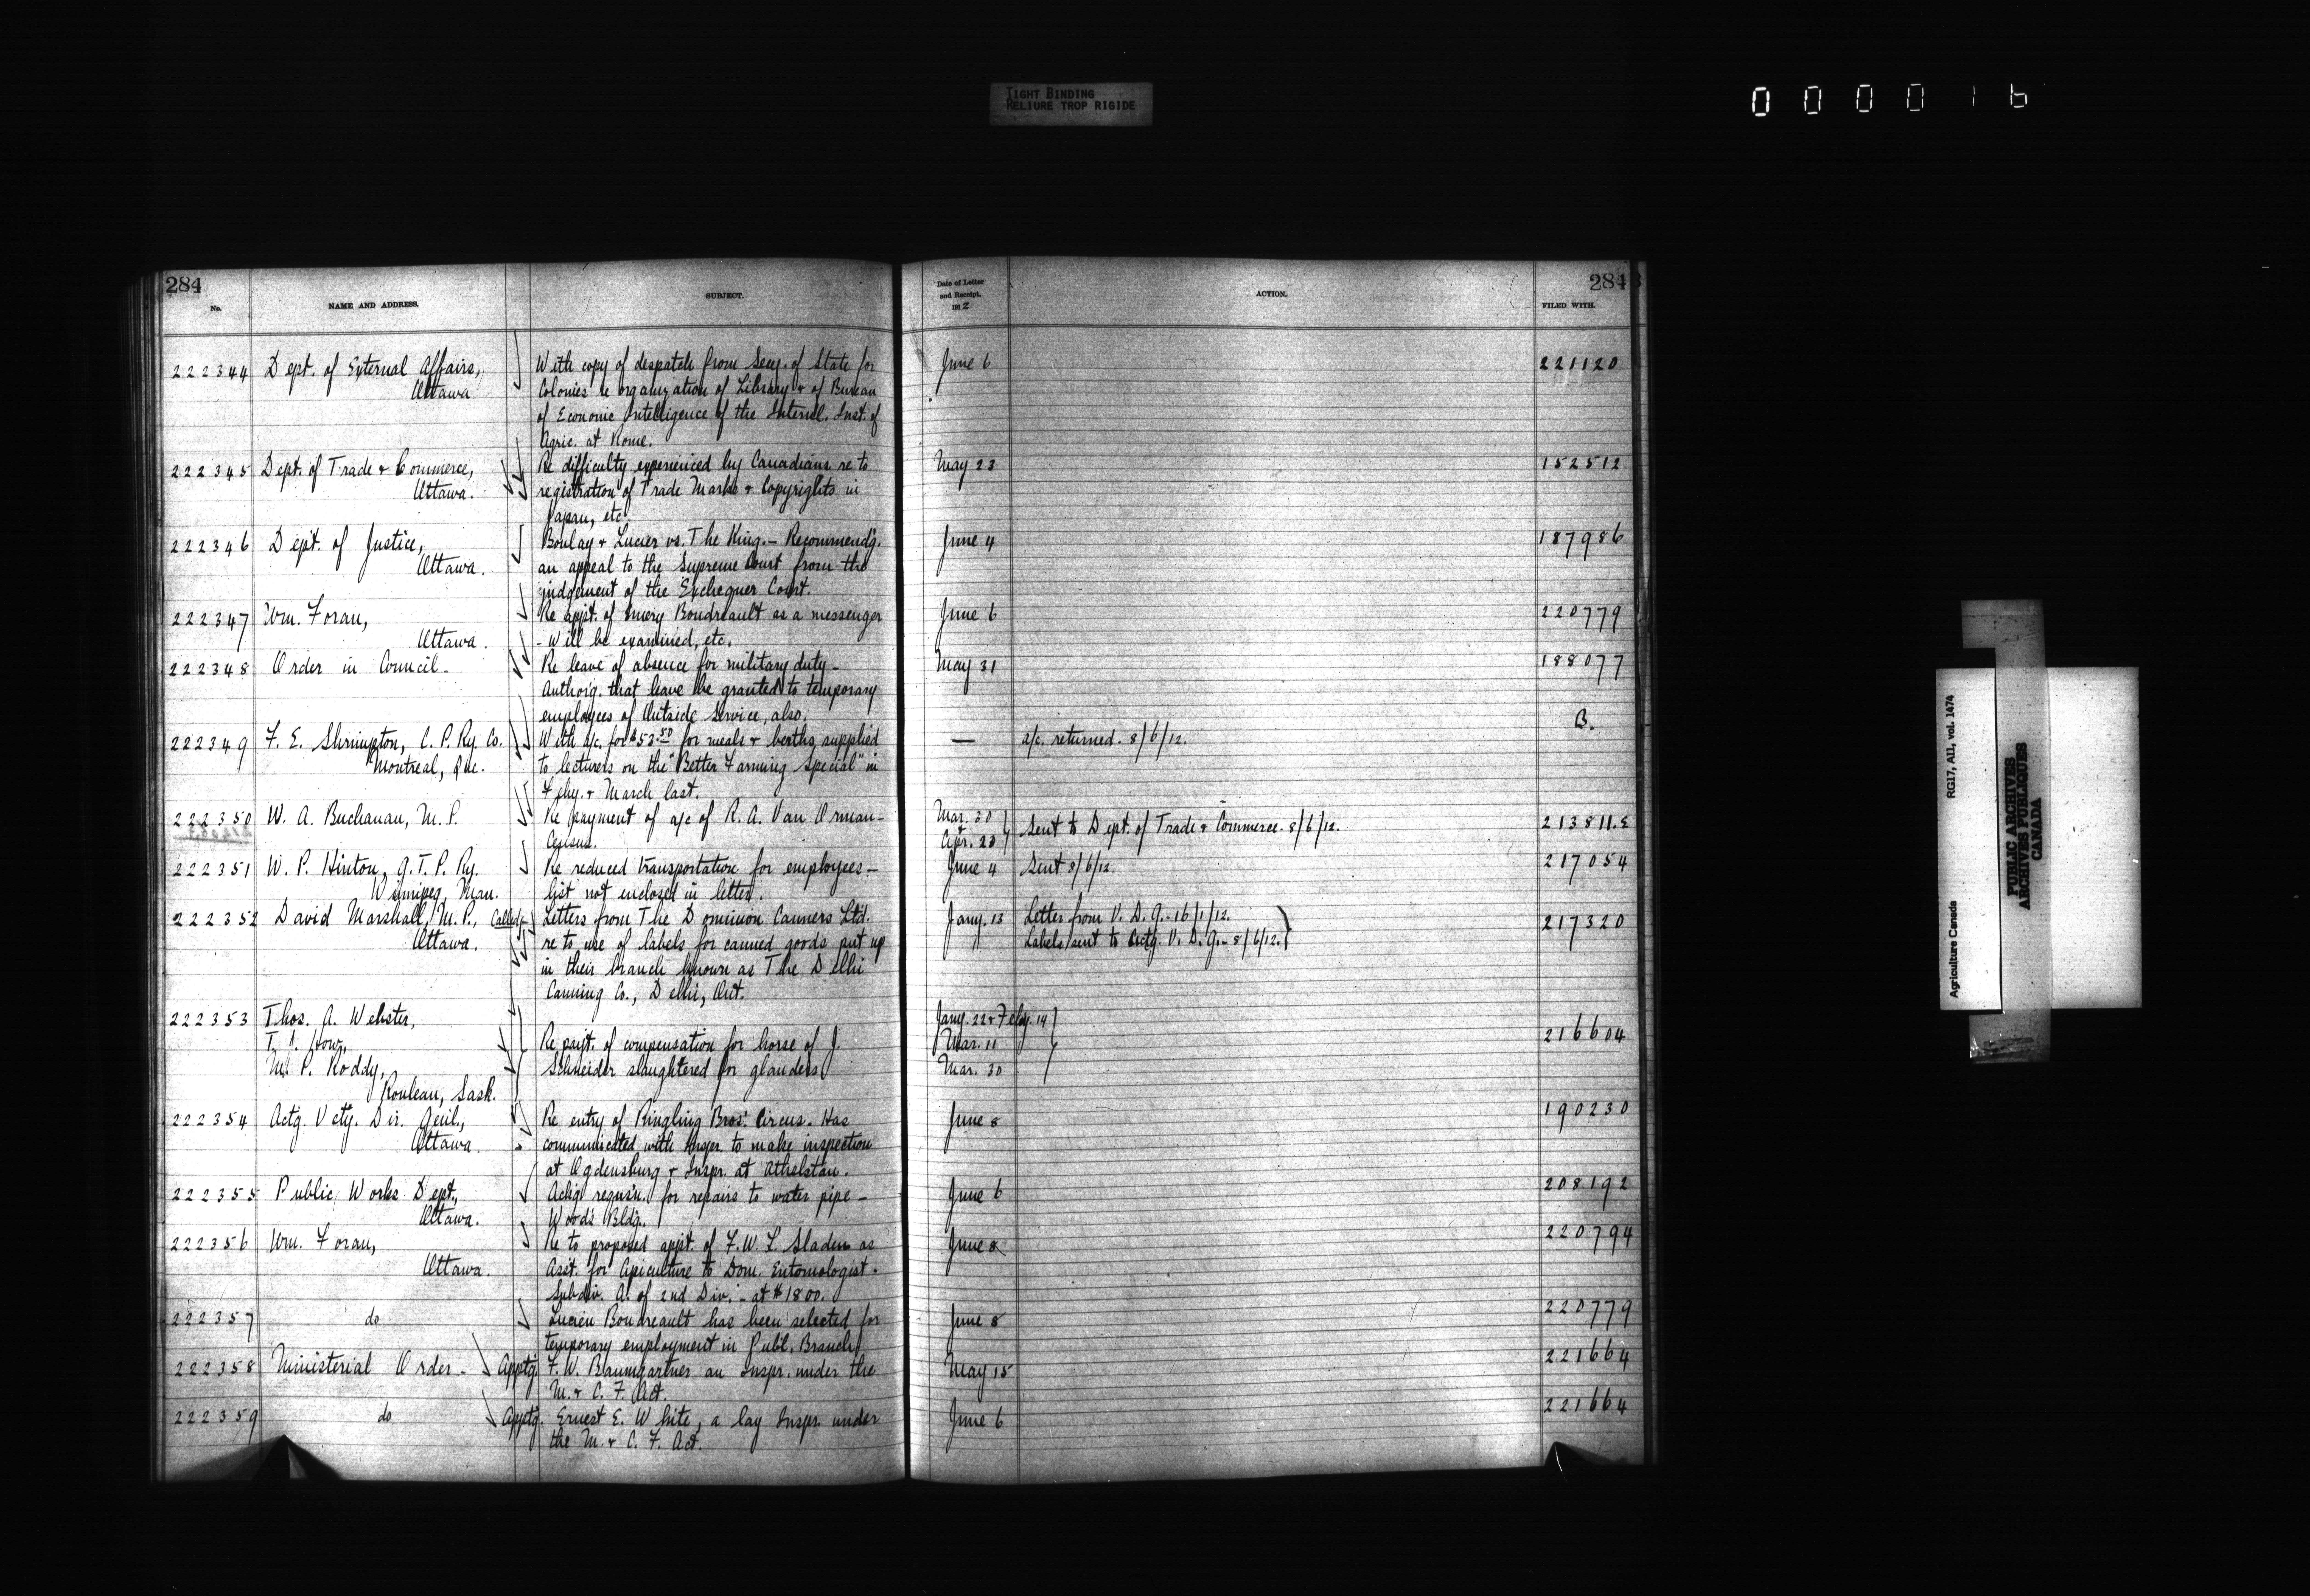 TIGHT BINDING
RELIURE TROP RIGIDE
000016
284
No.
NAME AND ADDRESS.
SUBJECT.
222344 Dept. of External Affairs, With copy of despatch from Secy. of State for
Ottawa Colonies re organization of Library & of Bureau
of Economic Intelligence of the Internl. Inst. of
Agric. at Rome.
222345 Dept. of Trade & Commerce, Re difficulty experienced by Canadians re to
Ottawa. registration of Trade Marks & Copyrights in
Japan, etc.
222346 Dept. of Justice, Boulay & Lucier vs. The King. - Recommendg.
Ottawa. an appeal to the Supreme Court from the
judgement of the Exchequer Court.
222347 Wm. Foran, Re appt. of Emery Boudreault as a messenger
Ottawa. - Will be examined, etc.
222348 Order in Council - Re leave of absence for military duty -
Authorig. that leave be granted to temporary
employees of Outside Service, also.
222349 F. E. Shrimpton, C. P. Ry. Co. With a/c. for $53.50 for meals & berths supplied
Montreal, Que. to lecturers on the "Better Farming Special" in
Feby. & March last.
222350 W. A. Buchanan, M. P. Re payment of a/c of R. A. Van Orman -
Census.
222351 W. P. Hinton, G. T. P. Ry. Re reduced transportation for employees -
Winnipeg, Man. list not enclosed in letter.
222352 David Marshall, M. P., Letters from The Dominion Canners Ltd.
Ottawa. re to use of labels for canned goods put up
in their branch known as The Delhi
Canning Co., Delhi, Ont.
222353 Thos. A. Webster,
T. J. How, Re paist. of compensation for horse of J.
M. P. Roddy, Schneider slaughtered for glanders
Rouleau, Sask.
222354 Actg. Vety. Dir. Genl., Re entry of Ringling Bros'. Circus. Has
Ottawa. communicated with Inspr. to make inspection
at Ogdensburg & Inspr. at Athelstan.
222355 Public Works Dept., Ackg. requsn. for repairs to water pipe -
Ottawa. Woods Bldg.
222356 Wm. Foran, Re to proposed appt. of F. W. L. Sladen as
Ottawa. Asst. for Apiculture to Dom. Entomologist.
Subdiv. A. of 2nd Div. - at $1800.
222357 do Lucien Boudreault has been selected for
temporary employment in Publ. Branch
222358 Ministerial Order - Apptg. F. W. Baumgartner an Inspr. under the
M. & C. F. Act.
222359 do Apptg. Ernest E. White, a lay Inspr. under
the M. & C. F. Act.
Date of Letter
and Receipt,
191 2
ACTION.
284
FILED WITH.
June 6 221120
May 23 152512
June 4 187986
June 6 220779
May 31 188077
B.
— a/c. returned. 8/6/12.
Mar. 20
& Sent to Dept. of Trade & Commerce. 8/6/12. 213811.E
Apr. 20
June 4 Sent 8/6/12. 217054
Jany. 13 Letter from V. D. G. - 16/1/12. 217320
Labels sent to Actg. V. D. G. - 8/6/12.
Jany. 22 & Feby. 14
Mar. 11 216604
Mar. 30
June 8 190230
June 6 208192
June 8 220794
June 8 220779
May 15 221664
June 6 221664
Agriculture Canada RG17, AII, vol. 1474
PUBLIC ARCHIVES
ARCHIVES PUBLIQUES
CANADA